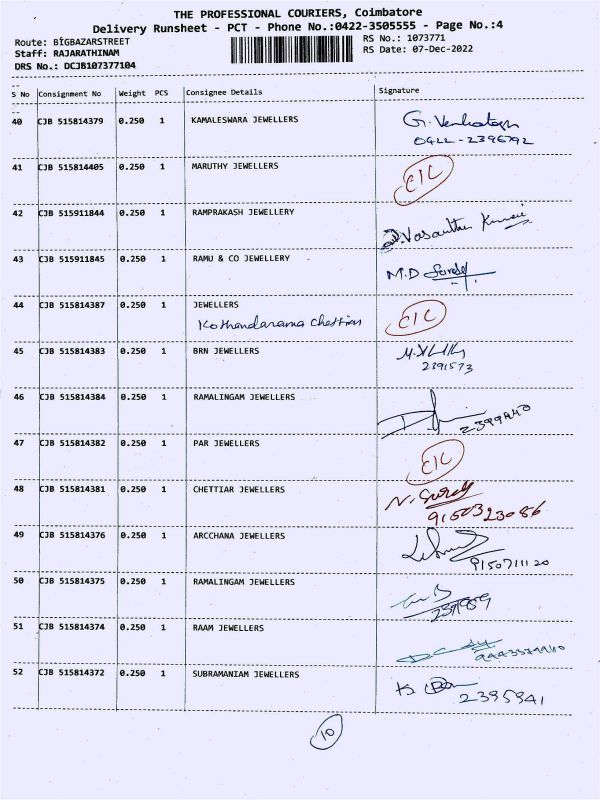 THE PROFESSIONAL COURIERS, Coimbatore
Delivery Runsheet - PCT - Phone No.:0422-3505555 - Page No.:4
Route: BIGBAZARSTREET
RS No.: 1073771
Staff: RAJARATHINAM
RS Date: 07-Dec-2022
DRS No.: DCJB107377104
S No Consignment No Weight PCS Consignee Details Signature
40 CJB 515814379 0.250 1 KAMALESWARA JEWELLERS
0422-2396792
41 CJB 515814405 0.250 1 MARUTHY JEWELLERS
42 CJB 515911844 0.250 1 RAMPRAKASH JEWELLERY
43 CJB 515911845 0.250 1 RAMU & CO JEWELLERY M.D
44 CJB 515814387 0.250 1 JEWELLERS
Kothandarama Chettiar
45 CJB 515814383 0.250 1 BRN JEWELLERS
2391573
46 CJB 515814384 0.250 1 RAMALINGAM JEWELLERS
47 CJB 515814382 0.250 1 PAR JEWELLERS
48 CJB 515814381 0.250 1 CHETTIAR JEWELLERS
9150323086
49 CJB 515814376 0.250 1 ARCCHANA JEWELLERS
9150711120
50 CJB 515814375 0.250 1 RAMALINGAM JEWELLERS
51 CJB 515814374 0.250 1 RAAM JEWELLERS
52 CJB 515814372 0.250 1 SUBRAMANIAM JEWELLERS
2395941
10